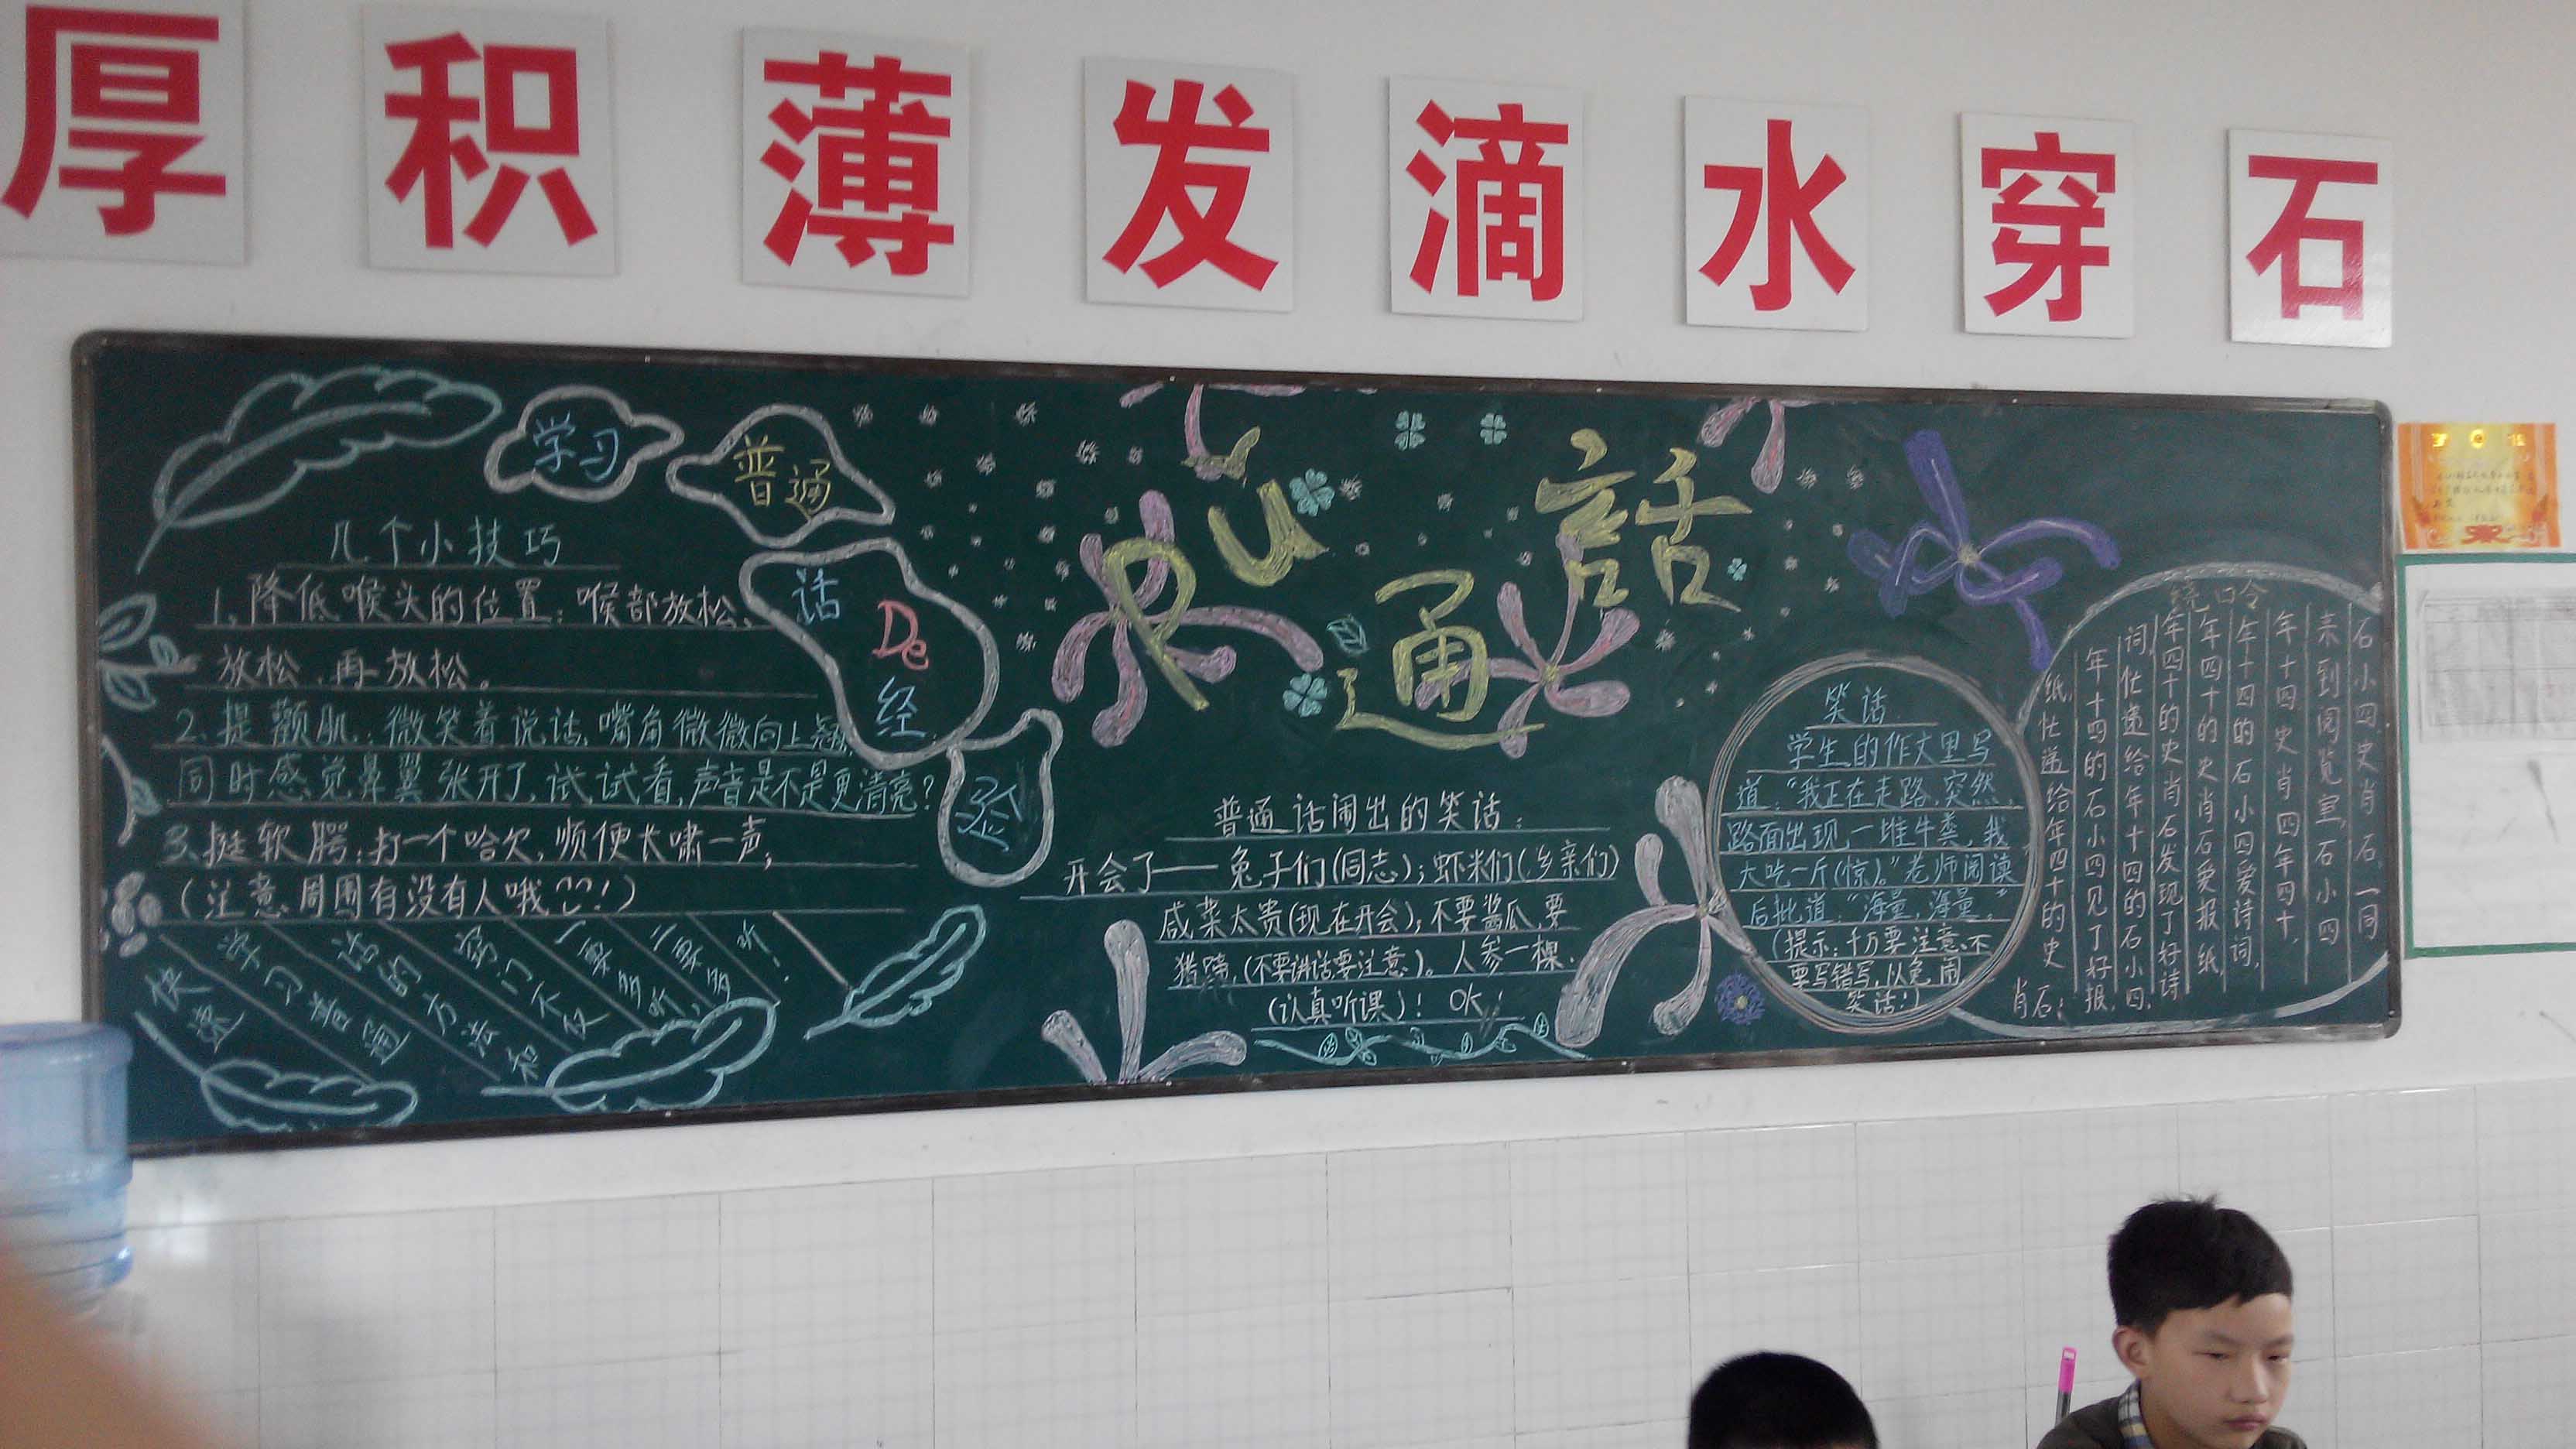 厚积薄发滴水穿石
学习
普通
话
De
经
验
几个小技巧
1、降低喉头的位置：喉部放松、
放松、再放松。
2、提颧肌：微笑着说话，嘴角微微向上翘，
同时感觉鼻翼张开了，试试看，声音是不是更清亮？
3、挺软腭：打一个哈欠，顺便长啸一声，
（注意周围有没有人哦！）
快速
学习普通
话的方法和
窍门不仅
一要多听，
二要多
听！
PU
通
話
普通话闹出的笑话：
开会了——兔子们(同志)；虾米们(乡亲们)
咸菜太贵(现在开会)；不要酱瓜，要
猪蹄，(不要讲话要注意)。人参一棵，
(认真听课)！OK！
笑话
学生的作文里写
道：“我正在走路，突然
路面出现一堆牛粪，我
大吃一斤(惊)。”老师阅读
后批道：“海量，海量。”
(提示：千万要注意，不
要写错写，以免闹
笑话！)
绕口令
石小四，史肖石，一同
来到阅览室，石小四
年十四，史肖四年四十，
年十四的石小四爱诗词，
年四十的史肖石爱报纸，
年四十的史肖石发现了好诗
词，忙递给年十四的石小四，
年十四的石小四见了好报
纸，忙递给年四十的史
肖石；